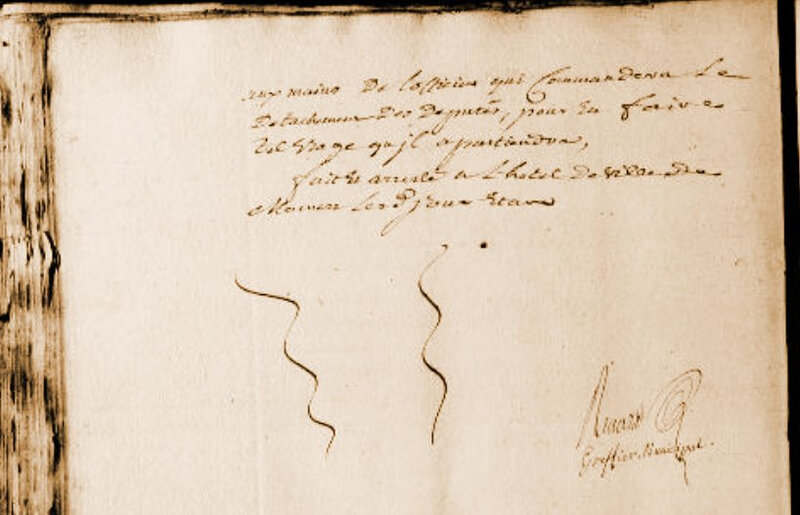 aux mains de l'officier qui Commandera Le
Detachement des Deputés, pour En faire
tel usage qu'jl apartiendra,
fait et arresté a L'hotel de ville de
Les d. jour et an
Greffier Municipal.